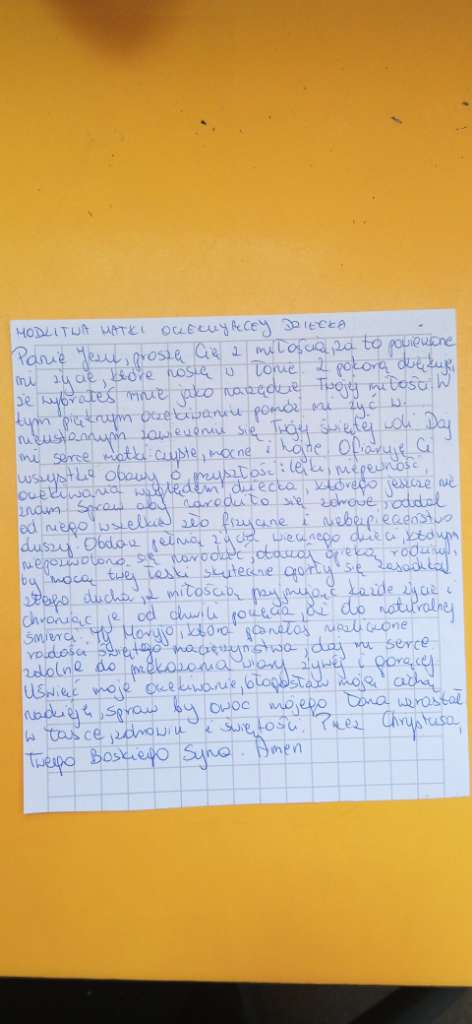 MODLITWA MATKI OCZEKUJĄCEJ DZIECKA
Panie Jezu, proszę Cię z miłością, za to powierzone
mi życie, które noszę w łonie. Z pokorą dziękuję,
że wybrałeś mnie jako narzędzie Twojej miłości. W
tym pięknym oczekiwaniu pomóż mi żyć w
nieustannym zawierzeniu się Twojej świętej woli. Daj
mi serce matki czyste, mocne i hojne. Ofiaruję Ci
wszystkie obawy o przyszłość: lęki, niepewność,
oczekiwania względem dziecka, którego jeszcze nie
znam. Spraw aby narodziło się zdrowe, oddal
od niego wszelkie zło fizyczne i niebezpieczeństwo
duszy. Obdarz pełnią życia wiecznego dzieci, którym
niepozwolono się narodzić, otaczaj opieką rodziny,
by mocą twej łaski skutecznie oparły się zasadzką
złego ducha, z miłością przyjmując każde życie i
chroniąc je od chwili poczęcia, aż do naturalnej
śmierci. Ty Maryjo, która zaznałaś niezliczone
radości świętego macierzyństwa, daj mi serce
zdolne do przekazania wiary żywej i gorącej.
Uświęć moje oczekiwanie, błogosław moją cichą
nadzieję, spraw by owoc mojego łona wzrastał
w łasce, zdrowiu i świętości. Przez Chrystusa,
Twego Boskiego Syna. Amen